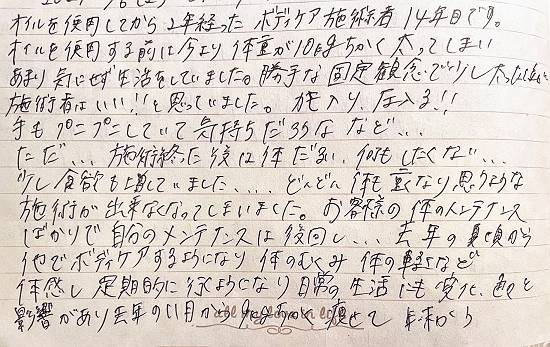 オイルを使用してから2年経った ボディケア施術者 14年目です。
オイルを使用する前は今より 体重が10kgちかく太ってしまい
あまり気にせず生活をしていました。勝手な固定観念で少し太った
施術者はいい!! と思っていました。力も入り、圧入る!!
手もプニプニしていて気持ちだろうな など...
ただ... 施術終った後は体だるい 何もしたくない...
少し食欲も増していました.... どんどん体も重くなり思うような
施術が出来なくなってしまいました。お客様の体のメンテナンス
ばかりで自分のメンテナンスは後回し... 去年の夏頃から
他でボディケアするようになり 体のむくみ 体の軽さなど
体感し 定期的に行くようになり 日常の生活にも変化、色々と
影響があり去年の11月から 9kgちかく 痩せて 年末から